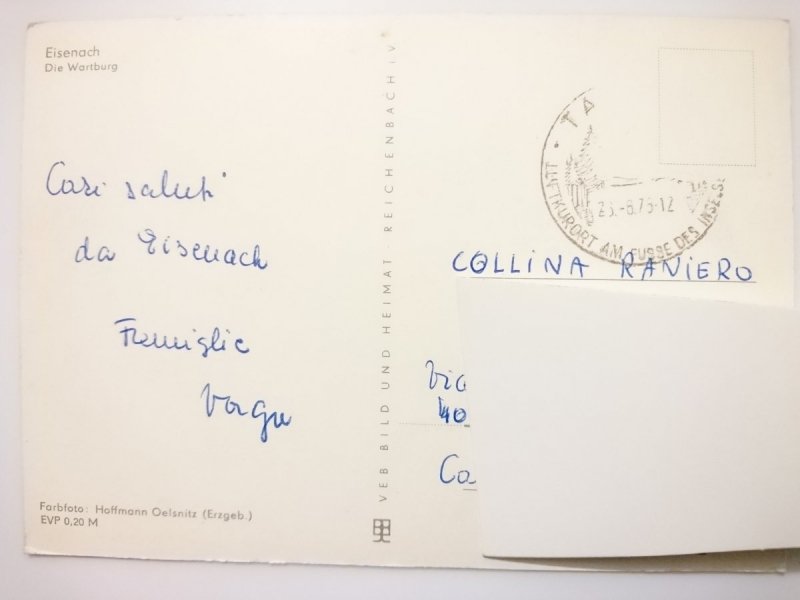 Eisenach
Die Wartburg
Cari saluti
da Eisenach
Famiglie
VEB BILD UND HEIMAT · REICHENBACH I V
TA
KURORT AM FUSSE DES INSELS
23.-8.75-12
COLLINA RANIERO
Via
40
Ca
Farbfoto: Hoffmann Oelsnitz (Erzgeb.)
EVP 0,20 M